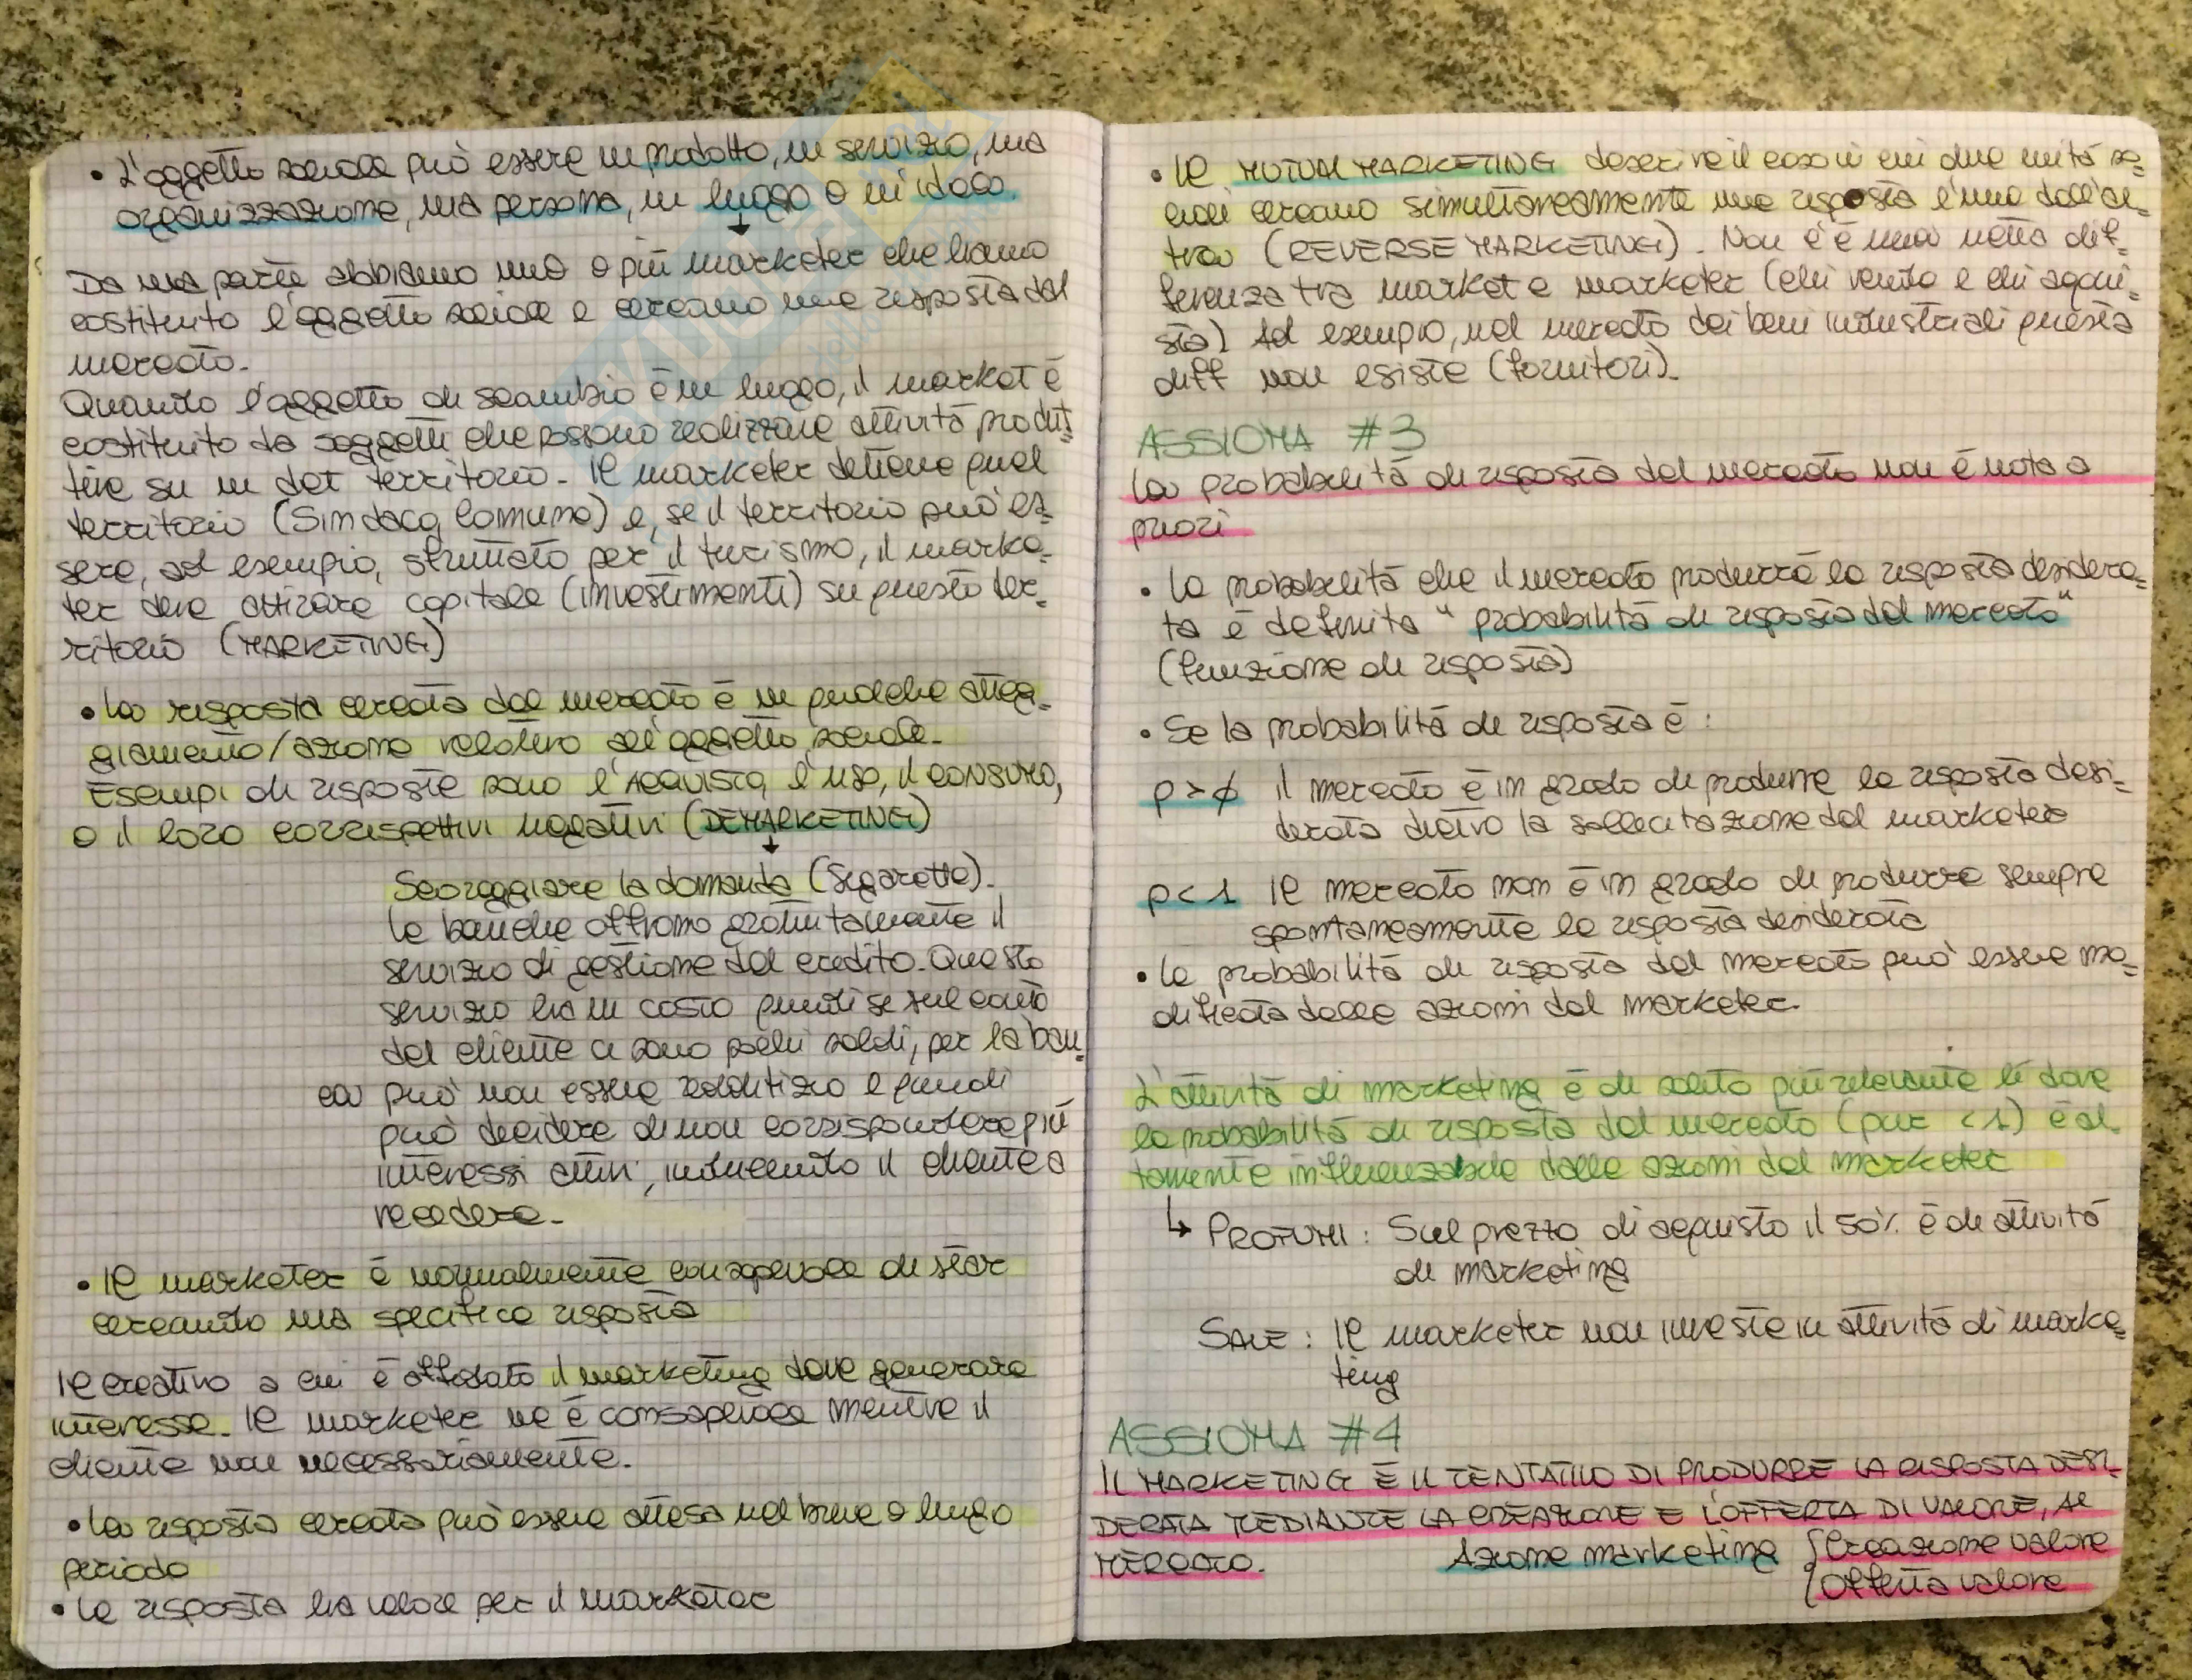 • L'oggetto sociale può essere un prodotto, un servizio, una
organizzazione, una persona, un luogo o un'idea.
Da una parte abbiamo uno o più marketer che hanno
costituito l'oggetto sociale e cercano una risposta dal
mercato.
Quando l'oggetto di scambio è un luogo, il market è
costituito da soggetti che possono realizzare attività produt-
tive su un det territorio. Il marketer detiene quel
territorio (Sindaco, Comune) e, se il territorio può es-
sere, ad esempio, sfruttato per il turismo, il marke-
ter deve attirare capitale (investimenti) su questo ter-
ritorio (MARKETING)
• La risposta cercata dal mercato è un qualche atteg-
giamento/azione relativo all'oggetto sociale.
Esempi di risposte sono l'ACQUISTO, l'uso, il CONSUMO,
o il loro corrispettivi negativi (DEMARKETING)
Scoraggiare la domanda (Sigarette).
Le banche offrono gratuitamente il
servizio di gestione del credito. Questo
servizio ha un costo quindi se sul conto
del cliente ci sono pochi soldi, per la ban-
ca può non essere redditizio e quindi
può decidere di non corrispondere più
interessi attivi, inducendo il cliente a
recedere.
• Il marketer è normalmente consapevole di star
cercando una specifica risposta
Il creativo a cui è affidato il marketing deve generare
interesse. Il marketer ne è consapevole mentre il
cliente non necessariamente.
• La risposta cercata può essere attesa nel breve o lungo
periodo
• La risposta ha valore per il marketer
• Il MUTUAL MARKETING descrive il caso in cui due unità so-
ciali cercano simultaneamente una risposta l'una dall'al-
tra (REVERSE MARKETING). Non c'è una netta dif-
ferenza tra market e marketer (chi vende e chi acqui-
sta) Ad esempio, nel mercato dei beni industriali questa
diff non esiste (fornitori).
ASSIOMA #3
La probabilità di risposta del mercato non è nota a
priori
• La probabilità che il mercato produrrà la risposta desidera-
ta è definita "probabilità di risposta del mercato"
(funzione di risposta)
• Se la probabilità di risposta è :
p > ϕ il mercato è in grado di produrre la risposta desi-
derata dietro la sollecitazione del marketer
p < 1 Il mercato non è in grado di produrre sempre
spontaneamente la risposta desiderata
• La probabilità di risposta del mercato può essere mo-
dificata dalle azioni del marketer.
L'attività di marketing è di solito più rilevante lì dove
la probabilità di risposta del mercato (pur < 1) è al-
tamente influenzabile dalle azioni del marketer
↳ PROFUMI : Sul prezzo di acquisto il 50% è di attività
di marketing
SALE : Il marketer non investe in attività di marke-
ting
ASSIOMA #4
IL MARKETING È IL TENTATIVO DI PRODURRE LA RISPOSTA DESI-
DERATA MEDIANTE LA CREAZIONE E L'OFFERTA DI VALORE, AL
MERCATO. Azione marketing { Creazione valore
{ Offerta valore